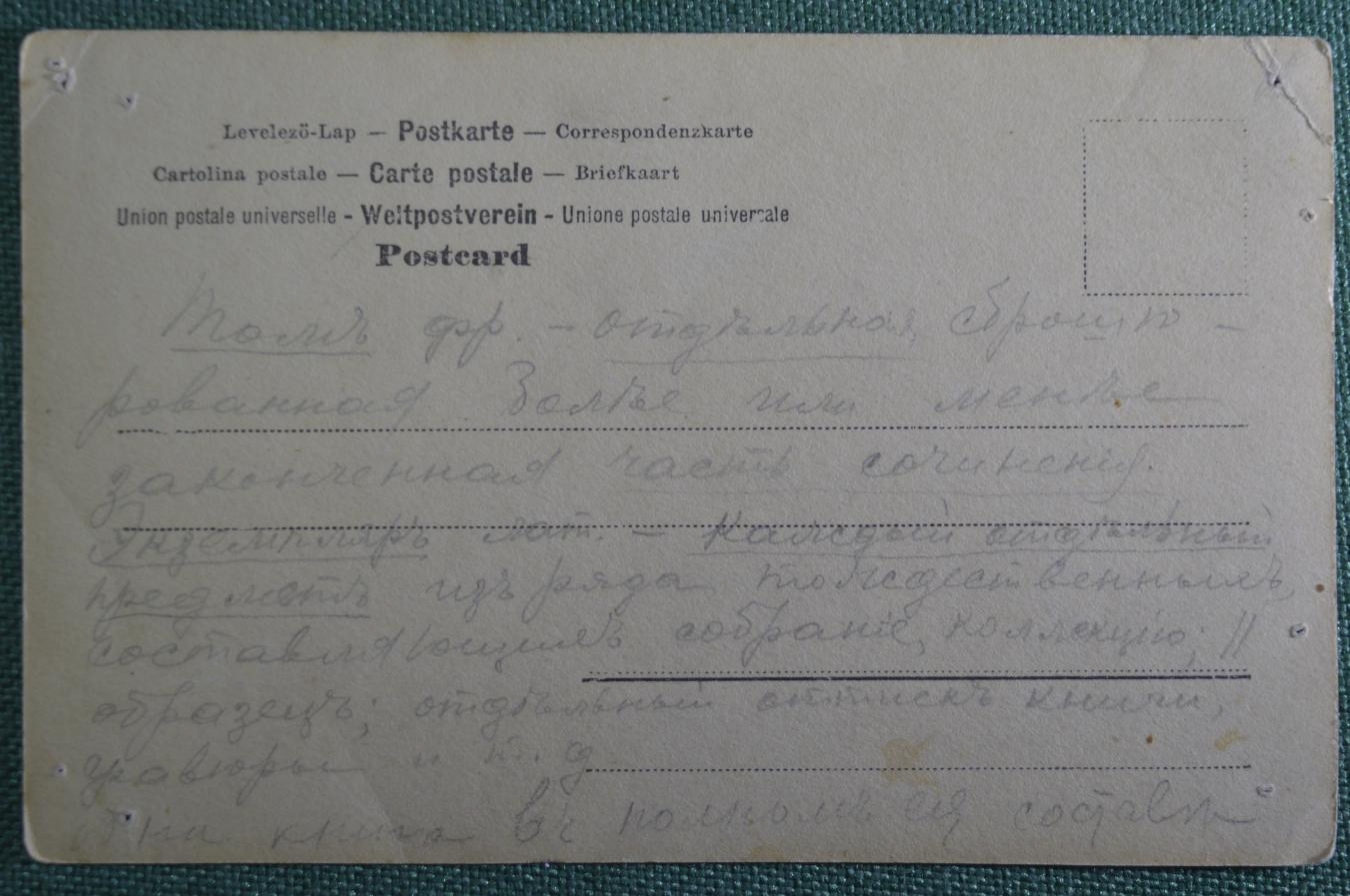 Levelező-Lap — Postkarte — Correspondenzkarte
Cartolina postale — Carte postale — Briefkaart
Union postale universelle - Weltpostverein - Unione postale universale
Postcard
Томъ фр. — отдѣльная сброшю-
рованная болѣе или менѣе
законченная часть сочиненія.
Экземпляръ лат. — Каждый отдѣльный
предметъ изъ ряда тождественныхъ,
составляющихъ собраніе, коллекцію; //
образецъ; отдѣльный оттискъ книги,
гравюры и т. д
книга въ полномъ ея составѣ